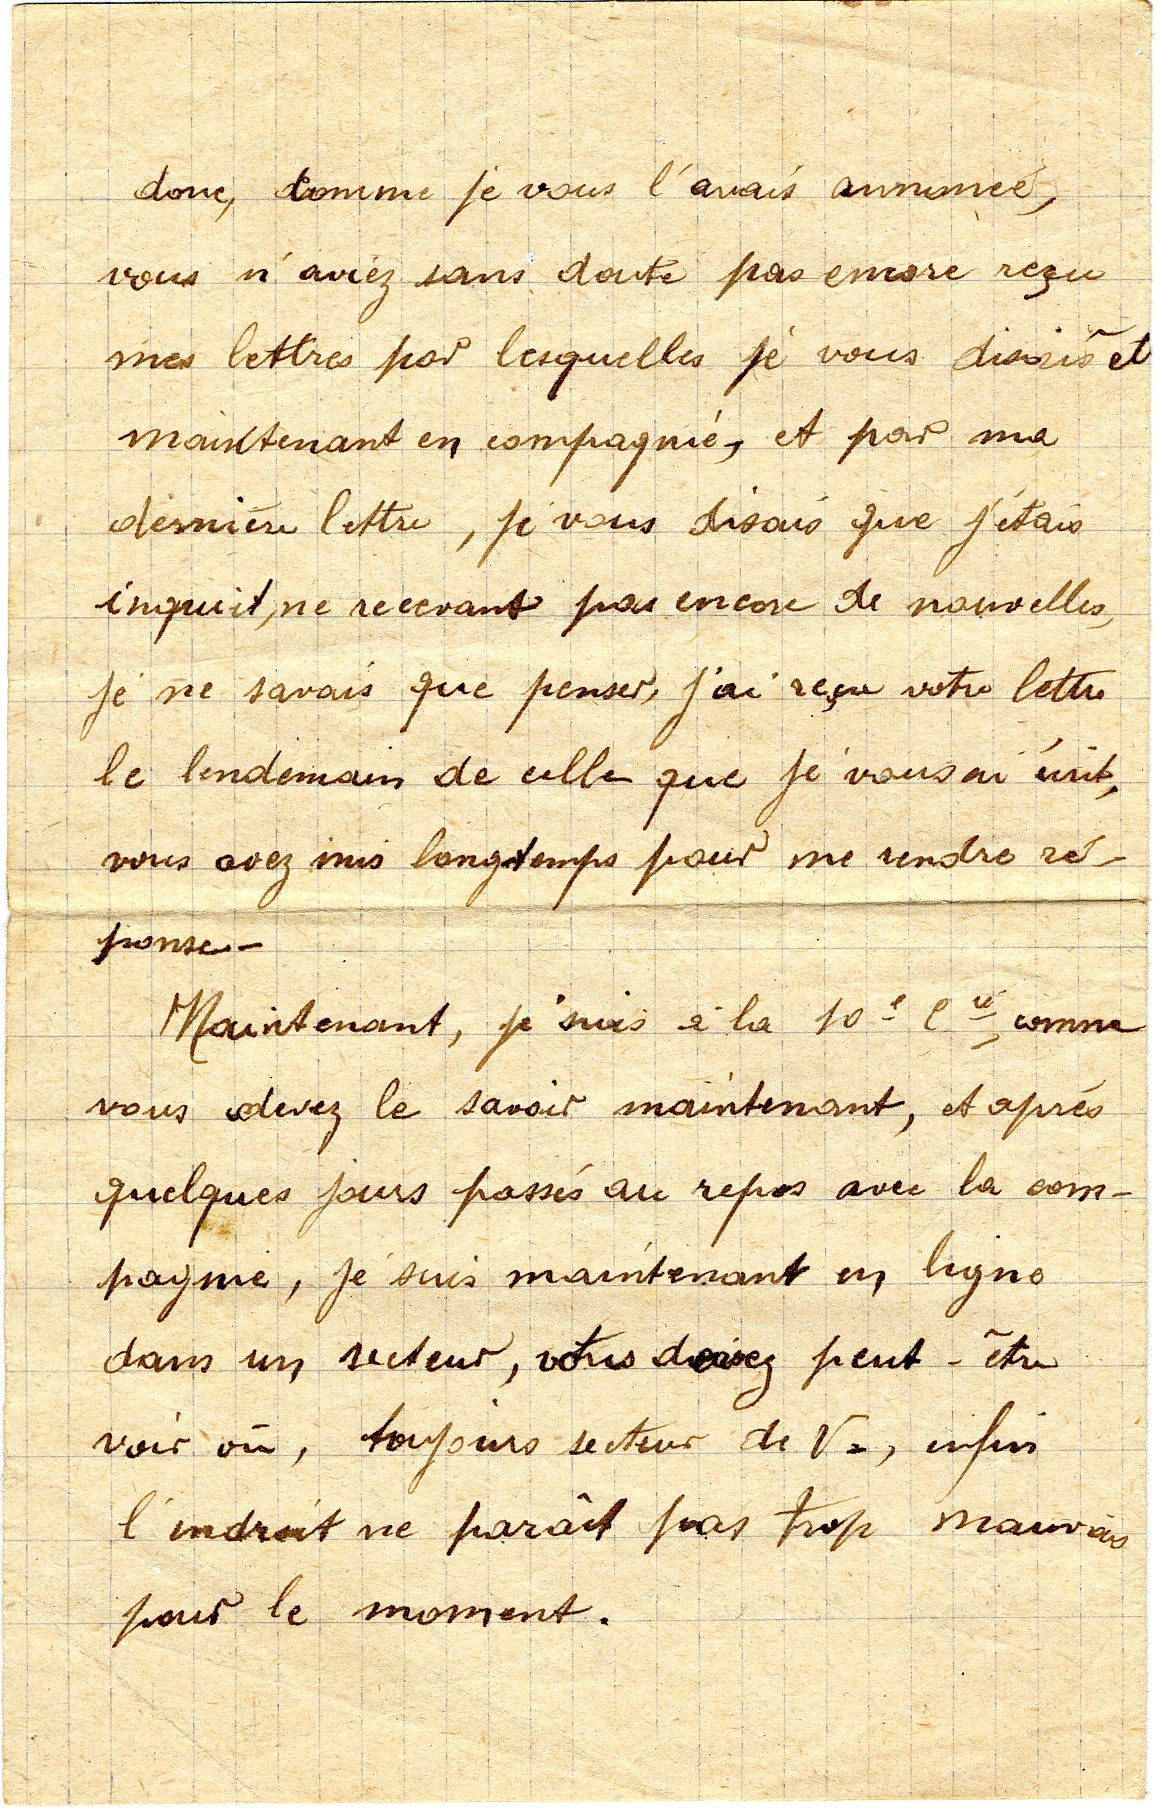 donc, comme je vous l'avais annoncé,
vous n'aviez sans doute pas encore reçu
mes lettres par lesquelles je vous disais et
maintenant en compagnie, et par ma
dernière lettre, je vous disais que j'étais
inquiet, ne recevant pas encore de nouvelles,
je ne savais que penser, j'ai reçu votre lettre
le lendemain de celle que je vous ai écrit,
vous avez mis longtemps pour me rendre ré-
ponse -
Maintenant, je suis à la 10e Cie, comme
vous devez le savoir maintenant, et après
quelques jours passés au repos avec la com-
pagnie, je suis maintenant en ligne
dans un secteur, vous devez peut-être
voir où, toujours secteur de V=, enfin
l'endroit ne paraît pas trop mauvais
pour le moment.